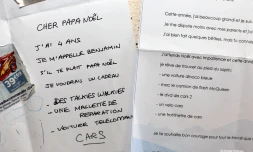 CHER PAPA NOËL
J'AI 4 ANS
JE M'APPELLE BENJAMIN
S'IL TE PLAIT PAPA NOËL
JE VOUDRAI UN CADEAU
- DES TALKIES WALKIES
- UNE MALLETTE DE
REPARATION
- VOITURE TELECOMMAN
CARS
Cette année, j'ai beaucoup grandi et je sui
je me dispute moins avec mes
j'ai bien fait quelques bêtises, mais tu connais
J'attends Noël avec impatience et cette anné
je rêve de trouver au pied du sapin:
- une voiture
- mac et camion de flash McQueen
- le dvd de cars 2
- un vélo cars
- une trottinette de cars
Je te souhaite bon courage pour tout le travail que